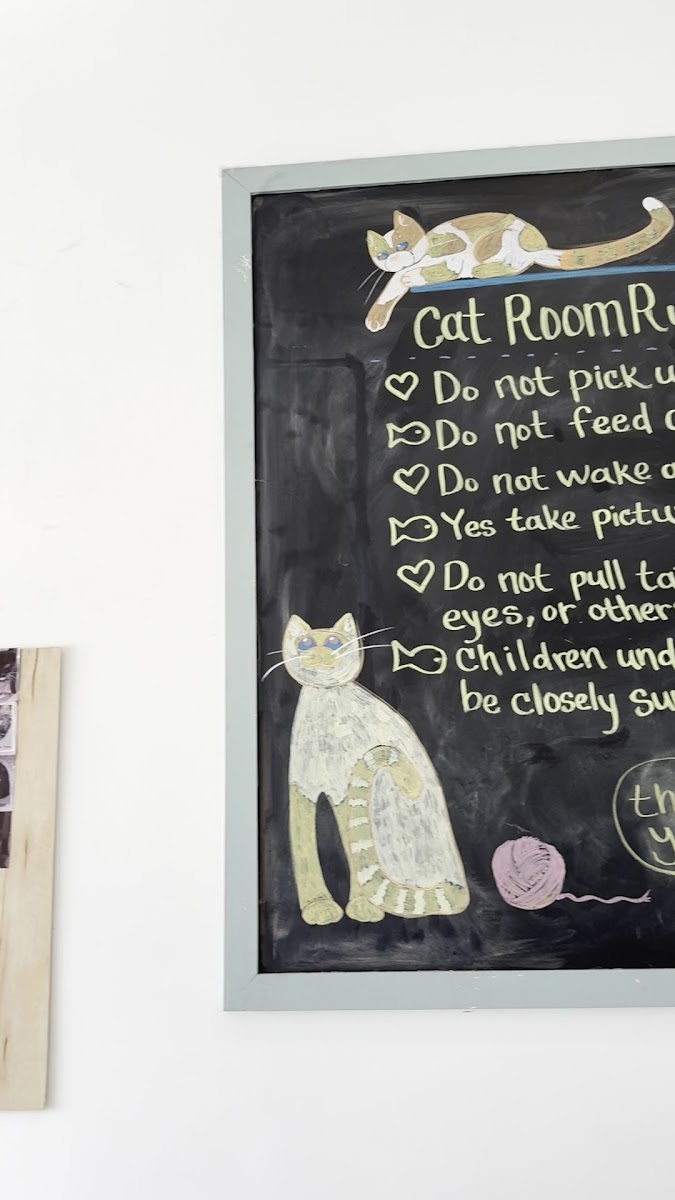 Cat Room Ru
Do not pick u
Do not feed
Do not wake a
Yes take pictu
Do not pull tai
eyes, or other
Children und
be closely su
th
y